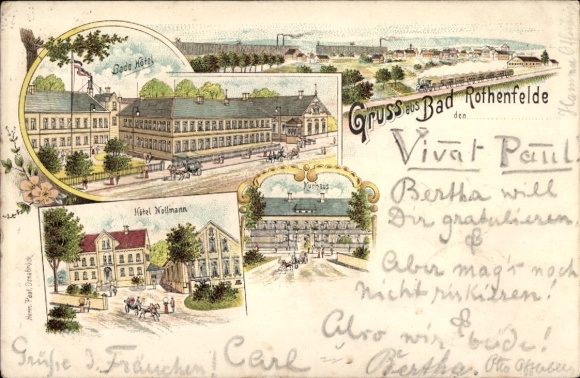 Bade Hôtel
Gruss aus Bad Rothenfelde
den
Kurhaus
Hôtel Wollmann
Herm. Paul, Osnabrück.
Vivat Paul.
Bertha will
Dir gratulieren
&
Aber mag's noch
nicht riskieren!
&
Also wir beide!
Carl Bertha.
Grüße d. Frauchen!
Otto